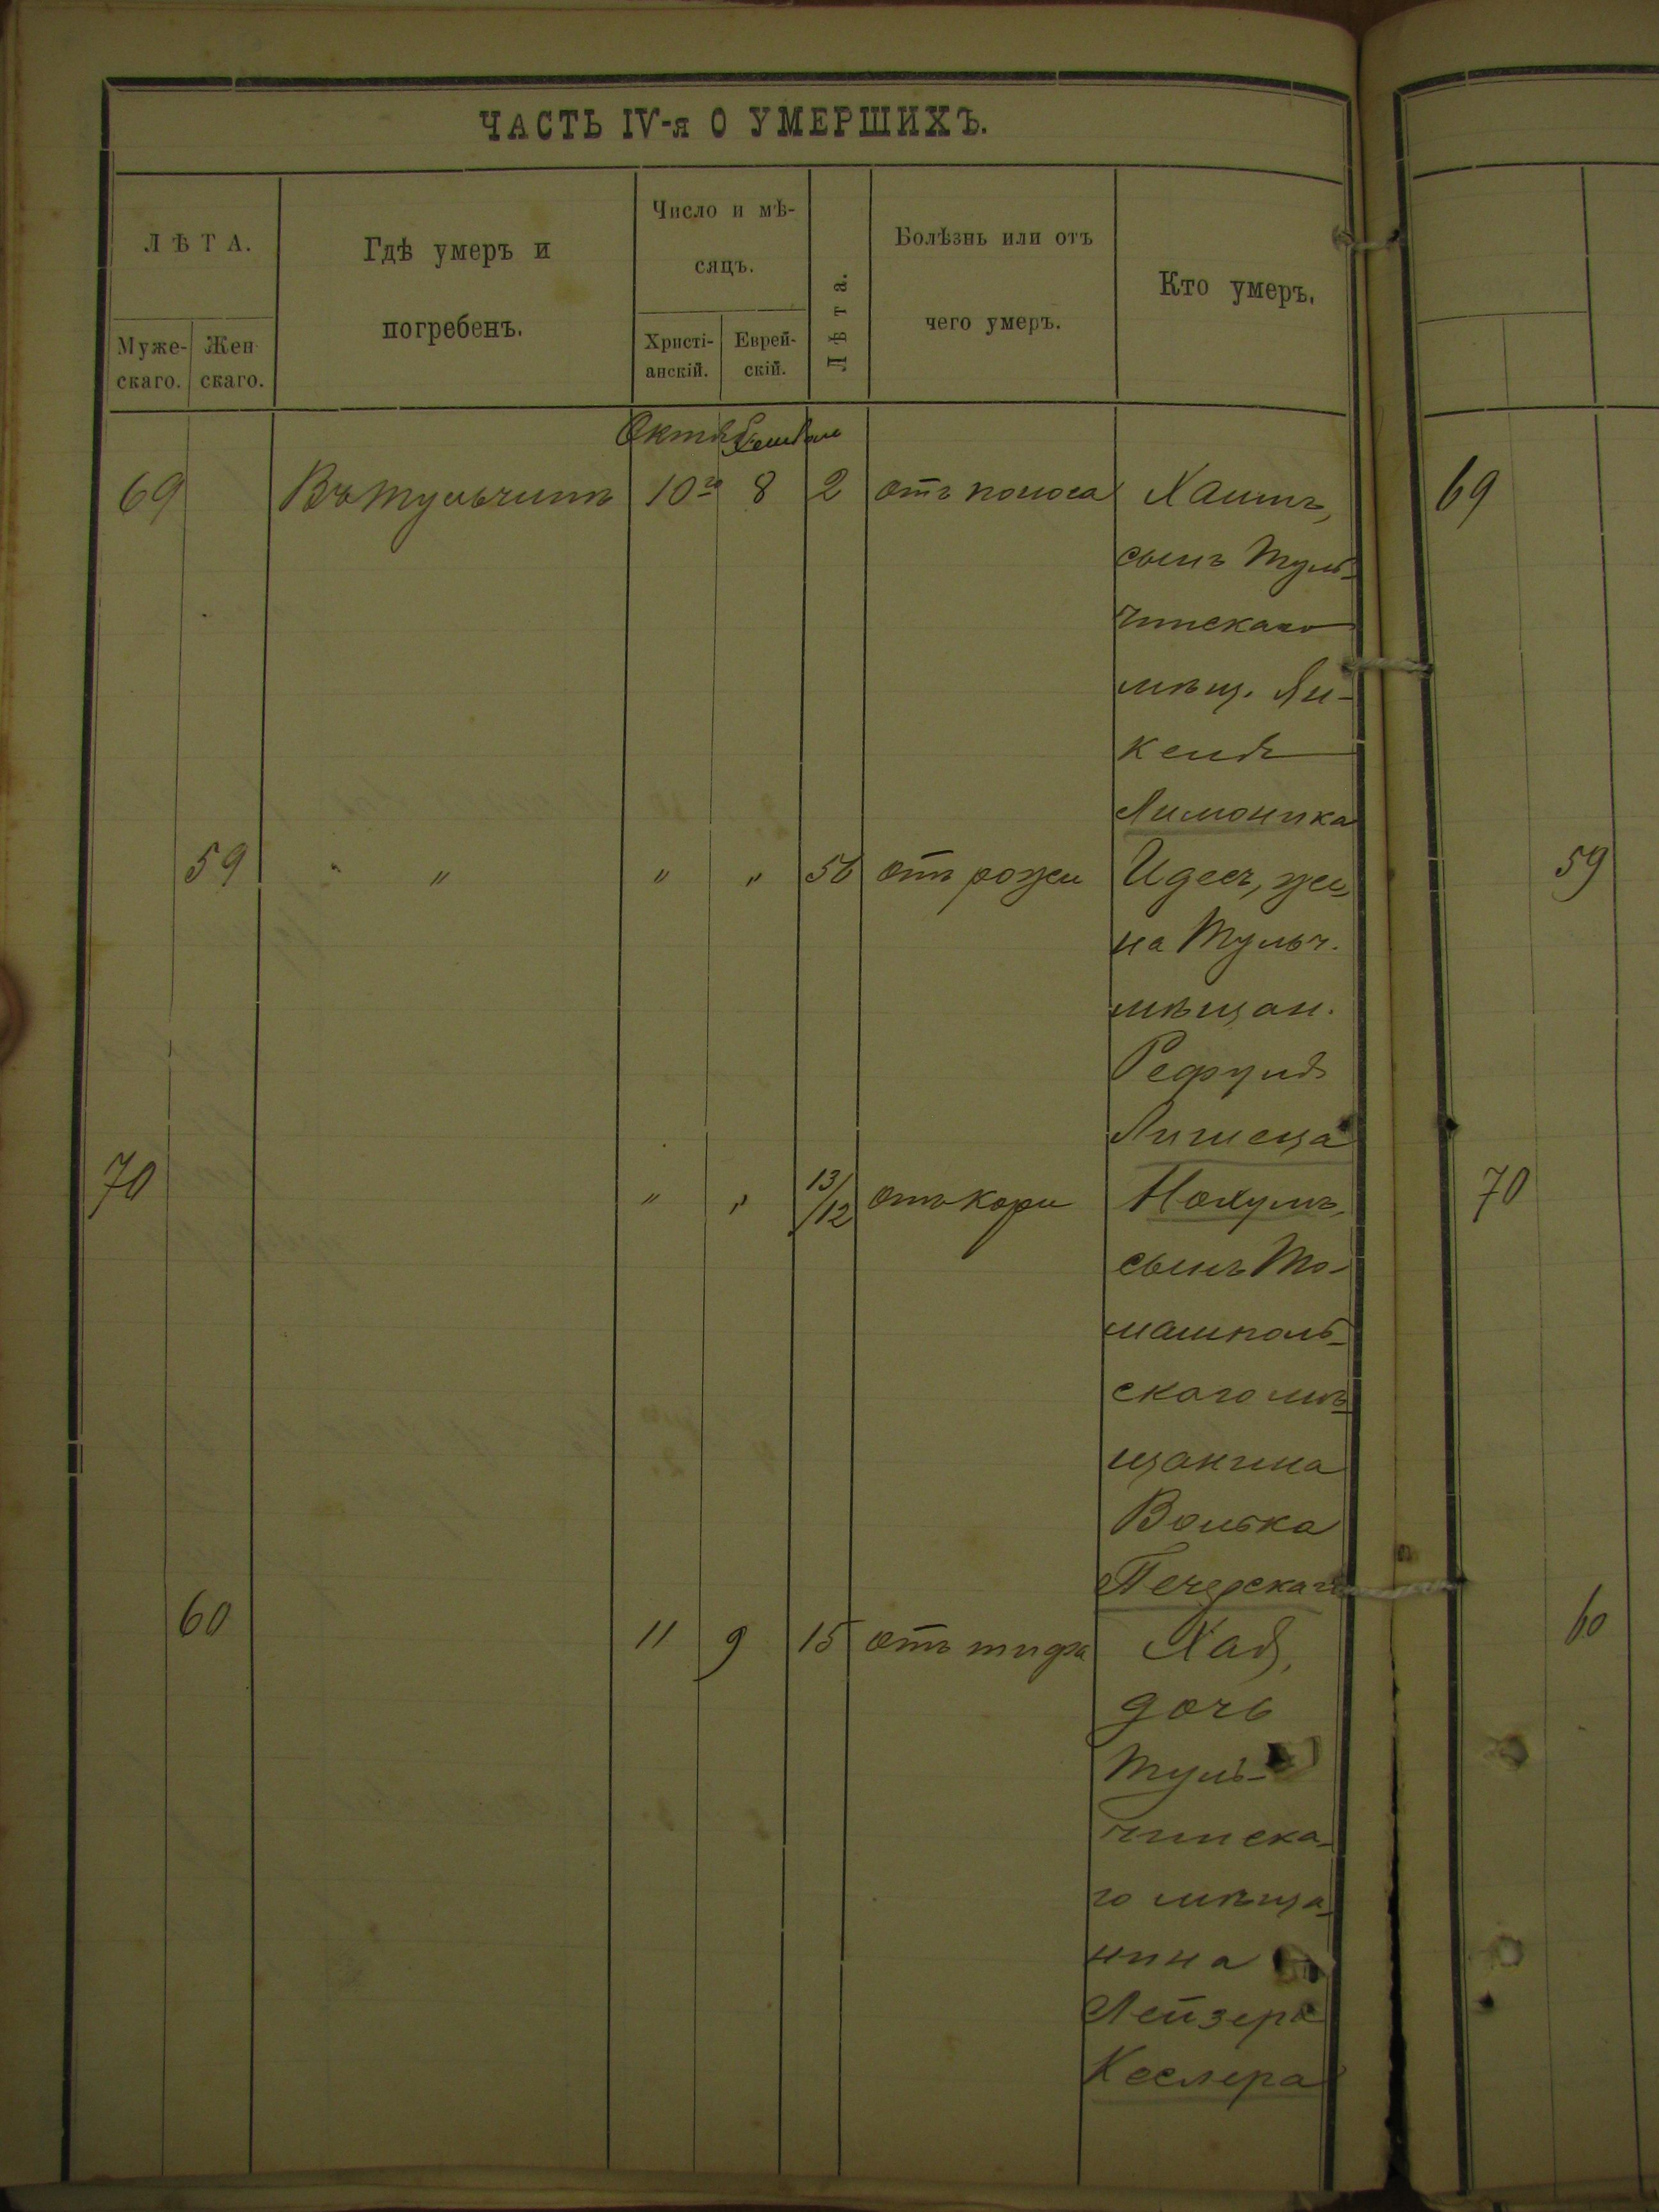 ЧАСТЬ IV-я О УМЕРШИХЪ.
ЛѢТА.
Муже-
скаго.
Жен
скаго.
Гдѣ умеръ и
погребенъ.
Число и мѣ-
сяцъ.
Христі-
анскій.
Еврей-
скій.
Лѣта.
Болѣзнь или отъ
чего умеръ.
Кто умеръ.
69 Въ Тульчинѣ 10го 8 2 отъ поноса Хаимъ, 69
сынъ Туль-
чинскаго
мѣщ. Ян-
келя
Лимоника
59 " " " 56 отъ рожи Идесъ, же- 59
на Тульч.
мѣщан.
Рефуля
Лишеца
70 " " 13/12 отъ кори Нохумъ, 70
сынъ То-
машполь-
скаго мѣ-
щанина
Волька
Печерскаго
60 11 9 15 отъ тифа Хая, 60
дочь
Туль-
чинска-
го мѣща-
нина
Лейзера
Кеслера